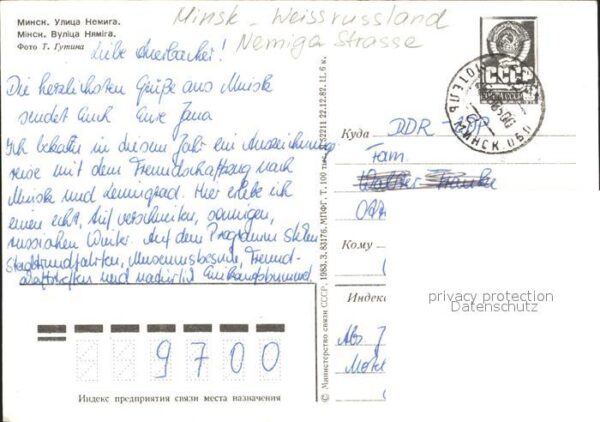 Минск. Улица Немига.
Мінск. Вуліца Няміга.
Фото Т. Гутина
Minsk - Weissrussland
Nemiga Strasse
Liebe Auerbacher!
Die herzlichsten Grüße aus Minsk
sendet Euch Eure Jana
Ich bekam in diesem Jahr ein Auszeichnung
reise mit dem Freundschaftszug nach
Minsk und Leningrad. Hier erlebe ich
einen echt, tief verschneiten, sonnigen,
russischen Winter. Auf dem Programm stehen
Stadtrundfahrten, Museumsbesuche, Freund-
schaftstreffen und natürlich Einkaufsbummel.
СССР
Куда DDR -
Fam.
Кому
Индекс
Abs
privacy protection
Datenschutz
9700
Индекс предприятия связи места назначения
© Министерство связи СССР, 1983. З. 83176. МПФГ. Т. 100 тыс. 52211 22.12.82. Ц. 6 к.